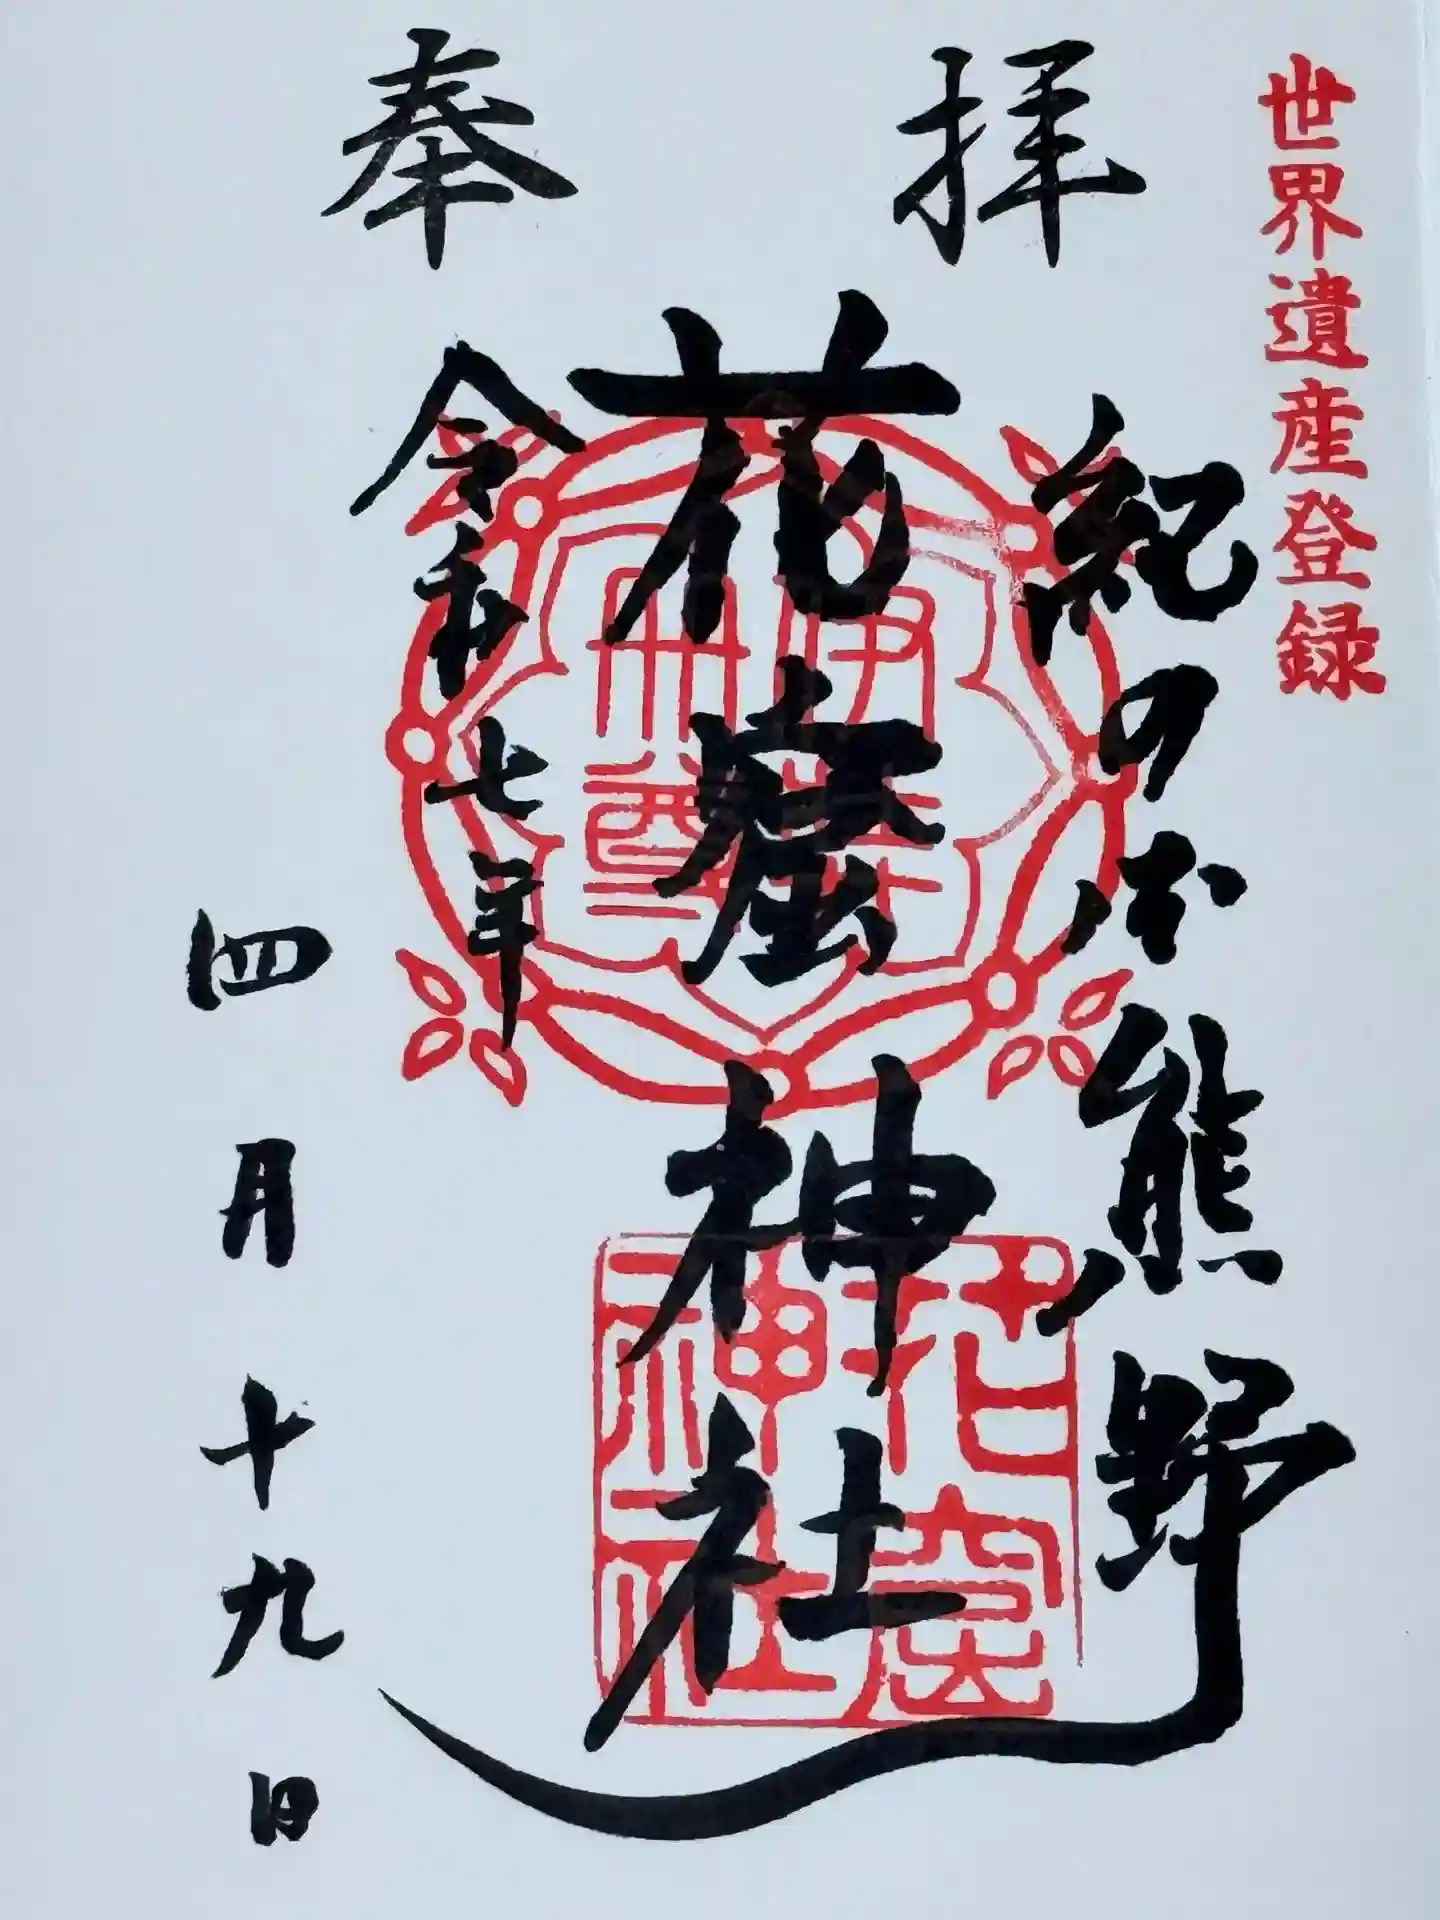 世界遺産登録
奉拝
紀の本熊野
花窟神社
令和七年
四月十九日
伊弉
冊尊
花窟
神社